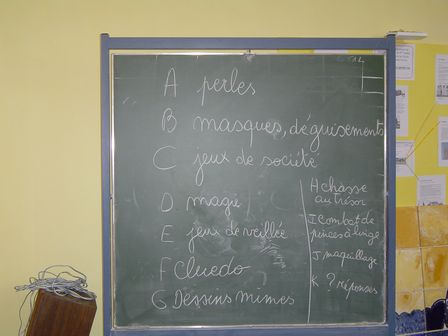 A perles
B masques, déguisements
C jeux de société
D magie
E jeux de veillée
F Cluedo
G Dessins mimés
H chasse
au trésor
I Combat de
pinces à linge
J maquillage
K ? réponses